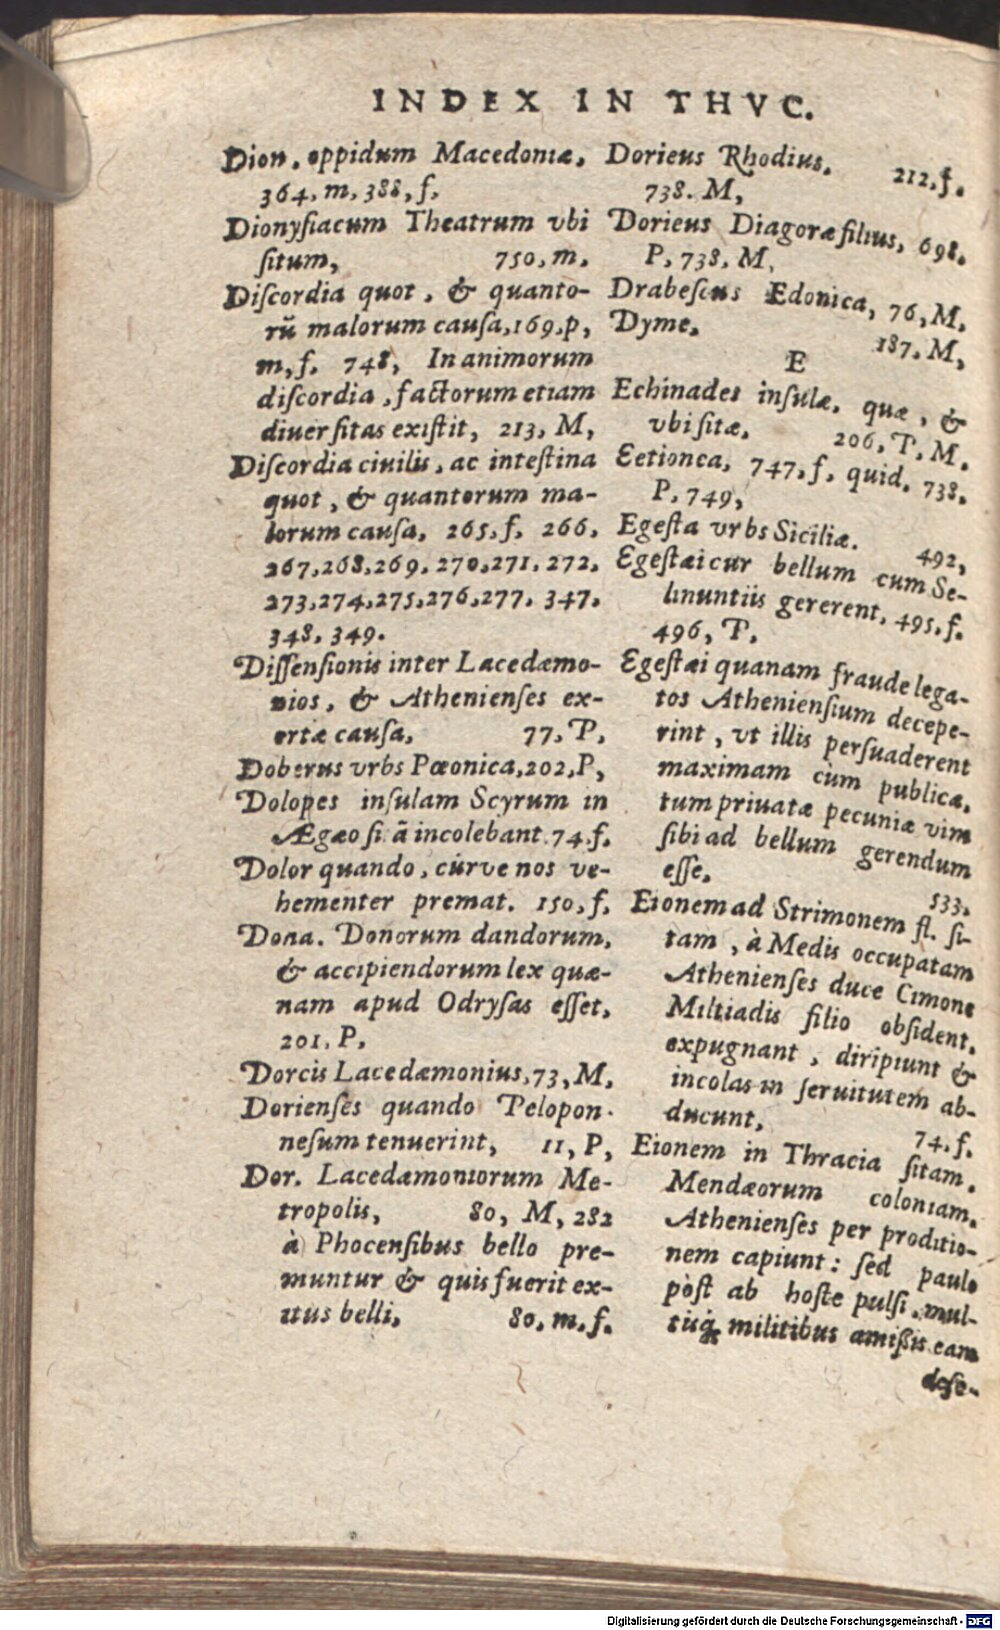 INDEX IN THVC.
Dion. oppidum Macedoniæ.
364. m. 388, f.
Dionysiacum Theatrum vbi
situm, 750, m.
Discordia quot, & quanto-
rũ malorum causa, 169. p,
m, f. 748, In animorum
discordia, factorum etiam
diuersitas existit, 213, M,
Discordia ciuilis, ac intestina
quot, & quantorum ma-
lorum causa, 265, f. 266.
267.268.269. 270.271. 272.
273.274.275.276.277. 347.
348. 349.
Dissensionis inter Lacedæmo-
nios, & Athenienses ex-
ortæ causa, 77, P,
Doberus vrbs Pæonica, 202, P,
Dolopes insulam Scyrum in
Ægæo si. ã incolebant 74. f.
Dolor quando, cúrve nos ve-
hementer premat. 150, f.
Dona. Donorum dandorum,
& accipiendorum lex quæ-
nam apud Odrysas esset.
201. P.
Dorcis Lacedæmonius, 73, M.
Dorienses quando Pelopon-
nesum tenuerint, 11, P,
Dor. Lacedæmoniorum Me-
tropolis, 80, M, 282
à Phocensibus bello pre-
muntur & quis fuerit ex-
itus belli, 80. m. f.
Dorieus Rhodius. 212. f.
738. M,
Dorieus Diagoræ filius, 698.
P. 738. M,
Drabescus Edonica, 76, M.
Dyme. 187. M,
E
Echinades insulæ. quæ, &
vbi sitæ. 206, P, M.
Eetionea, 747. f. quid. 738.
P. 749,
Egesta vrbs Siciliæ. 492,
Egestæi cur bellum cum Se-
linuntiis gererent, 495. f.
496, P.
Egestæi quanam fraude lega-
tos Atheniensium decepe-
rint, vt illis persuaderent
maximam cùm publicæ.
tum priuatæ pecuniæ vim
sibi ad bellum gerendum
esse. 533.
Eionem ad Strimonem fl. si-
tam, à Medis occupatam
Athenienses duce Cimone
Miltiadis filio obsident.
expugnant, diripiunt &
incolas in seruitutem ab-
ducunt, 74. f.
Eionem in Thracia sitam.
Mendæorum coloniam.
Athenienses per proditio-
nem capiunt: sed paulò
pòst ab hoste pulsi. mul-
tisq; militibus amißis eam
dese-
Digitalisierung gefördert durch die Deutsche Forschungsgemeinschaft - DFG